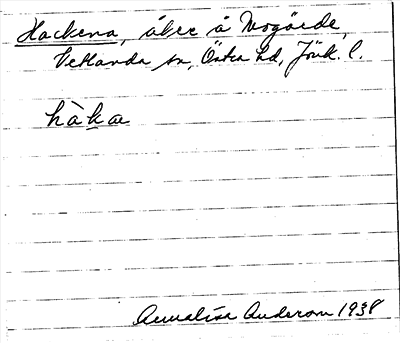 Hackena, åker å Mogärde,
Vetlanda sn, Östra hd, Jönk. l.
hàka
Annalisa Anderson 1938